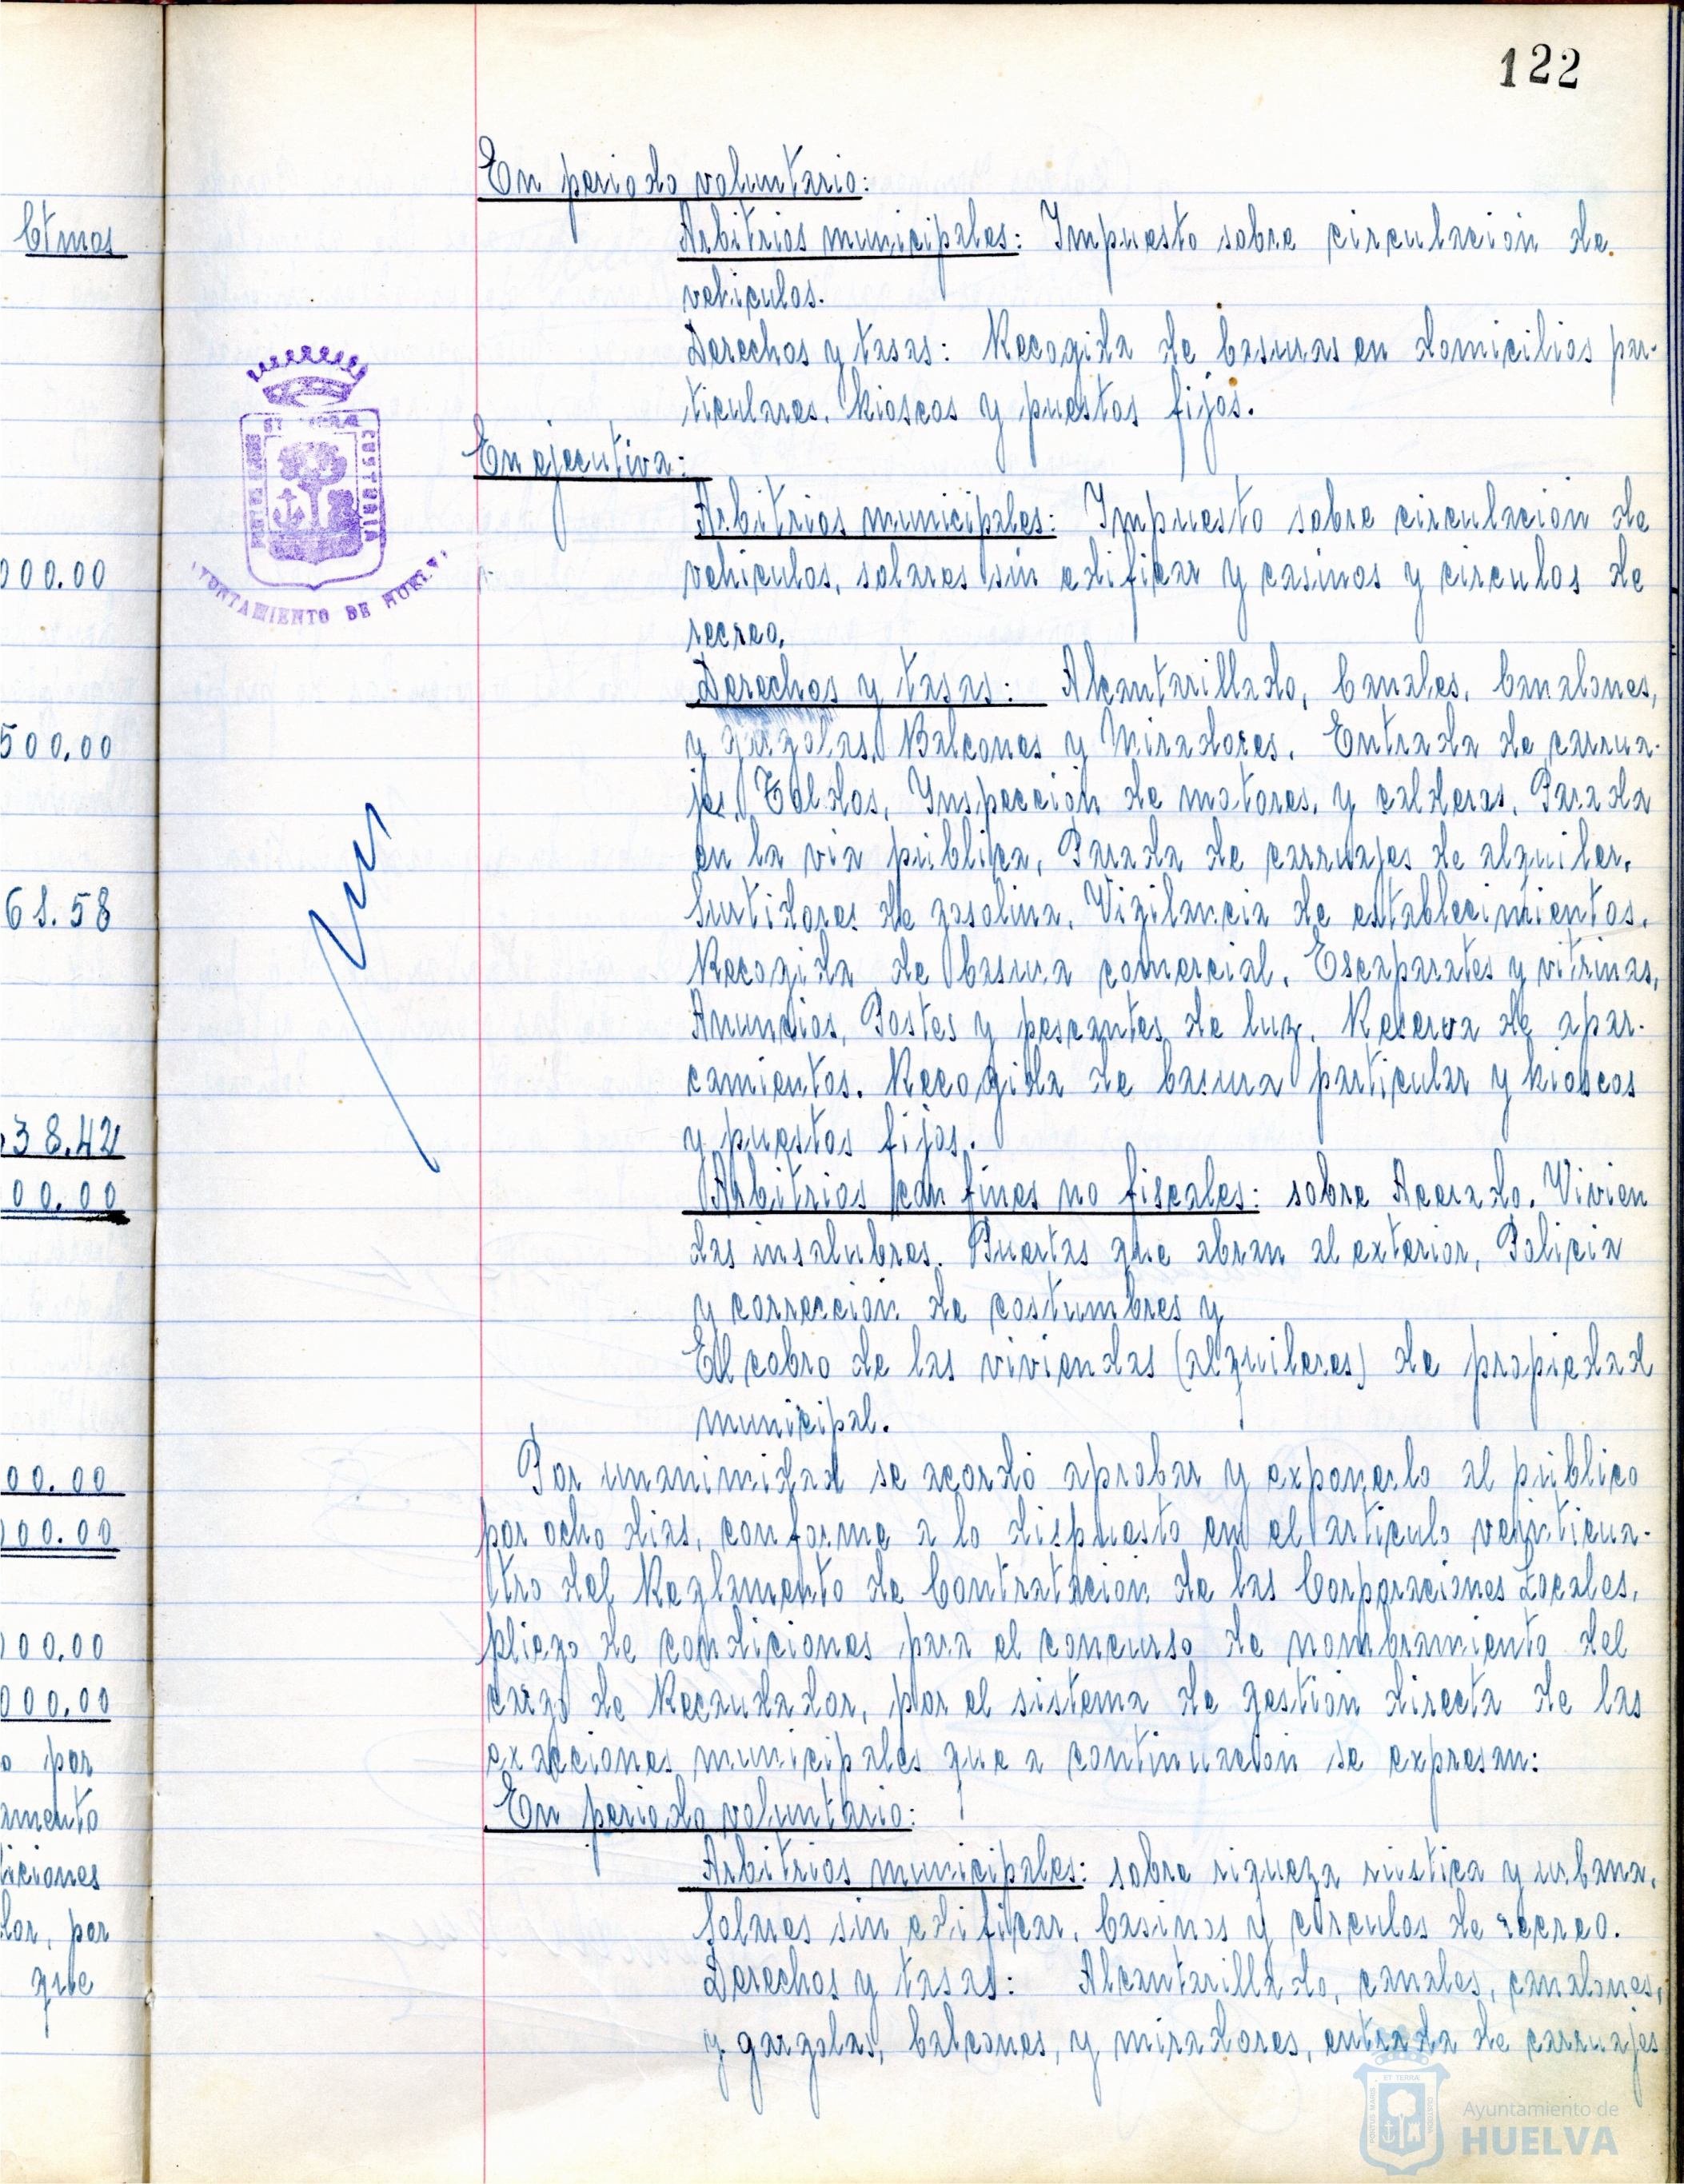 122
En periodo voluntario:
Arbitrios municipales: Impuesto sobre circulación de
vehiculos.
Derechos y tasas: Recogida de basuras en domicilios par-
ticulares. Kioscos y puestos fijos.
En ejecutiva:
Arbitrios municipales: Impuesto sobre circulación de
vehiculos, solares sin edificar y casinos y circulos de
recreo.
Derechos y tasas: Alcantarillado, Canales, Canalones,
y gargolas, Balcones y Miradores. Entrada de carrua-
jes, Toldos, Inspección de motores, y calderas, Parada
en la via pública, Parada de carruajes de alquiler,
Surtidores de gasolina, Vigilancia de establecimientos,
Recogida de basura comercial, Escaparates y vitrinas,
Anuncios, Postes y pescantes de luz, Reserva de apar-
camientos. Recogida de basura particular y kioscos
y puestos fijos.
Arbitrios con fines no fiscales: sobre Acerado. Vivien
das insalubres. Puertas que abran al exterior, Policia
y corrección de costumbres y
El cobro de las viviendas (alquileres) de propiedad
municipal.
Por unanimidad se acordó aprobar y exponerlo al público
por ocho dias, conforme a lo dispuesto en el articulo veinticua-
tro del Reglamento de Contratación de las Corporaciones Locales,
pliego de condiciones para el concurso de nombramiento del
cargo de Recaudador, por el sistema de gestión directa de las
exacciones municipales que a continuación se expresan:
En periodo voluntario:
Arbitrios municipales: sobre riqueza rústica y urbana,
Solares sin edificar, Casinos y circulos de recreo.
Derechos y tasas: Alcantarillado, canales, canalones,
y gargolas, balcones, y miradores, entrada de carruajes
Ctmos
000.00
500.00
61.58
38.42
00.00
00.00
00.00
00.00
000.00
o por
amento
diciones
dor, por
que
AYUNTAMIENTO DE HUELVA
Ayuntamiento de
HUELVA